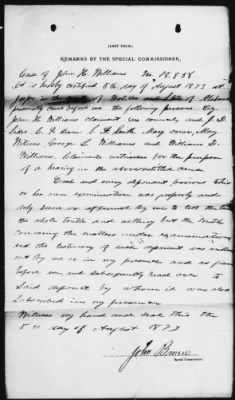 (LAST PAGE.)
REMARKS BY THE SPECIAL COMMISSIONER.
Case of John H. Williams No. 18,858
It is hereby certified 5th day of August 1873 at
in the of and State of Alabama
personally came before me the following persons viz
John H. Williams claimant his counsel and J. D.
C. A. S. H. Smith Mary Mary
George L. Williams and William D.
Williams, Claimants witnesses for the purpose
of a hearing in the above entitled case
Each and every deponent previous to his
or her examination was properly and
duly sworn or affirmed by me to tell the truth
the whole truth and nothing but the truth
concerning the matters under examination
and the testimony of each deponent was written
out by me or in my presence and as given
before me and subsequently read over to
said deponent by whom it was also
subscribed in my presence
Witness my hand and seal this the
5th day of August 1873
John
Special Commissioner.